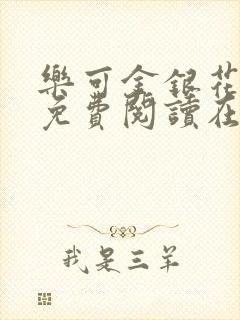 樂可金銀花
免費閱讀在
我是三羊